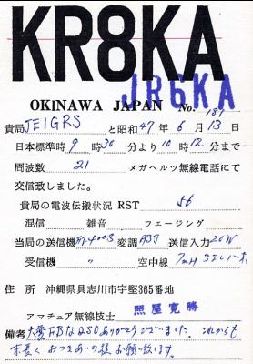 KR8KA
JR6KA
OKINAWA JAPAN No. 189
貴局 JE1GRS と昭和 47 年 6 月 13 日
日本標準時 9 時 30 分より 10 時 12 分まで
周波数 21 メガヘルツ無線電話にて
交信致しました。
貴局の電波伝搬状況 RST 56
混信 雑音 フェージング
当局の送信機 変調 送信入力 20W
受信機 〃 空中線
住所 沖縄県具志川市字堅365番地
アマチュア無線技士 照屋寛勝
備考 大変FBなQSOありがとうございました。これからも
末長くおつきあいの程お願い致します。